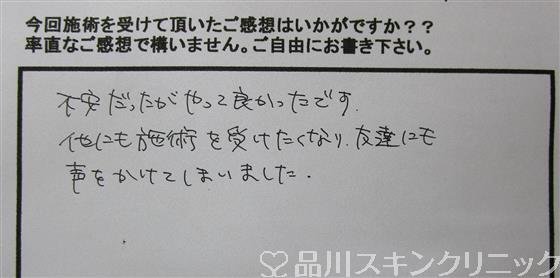 今回施術を受けて頂いたご感想はいかがですか??
率直なご感想で構いません。ご自由にお書き下さい。
不安だったがやって良かったです.
他にも施術を受けたくなり.友達にも
声をかけてしまいました.
品川スキンクリニック